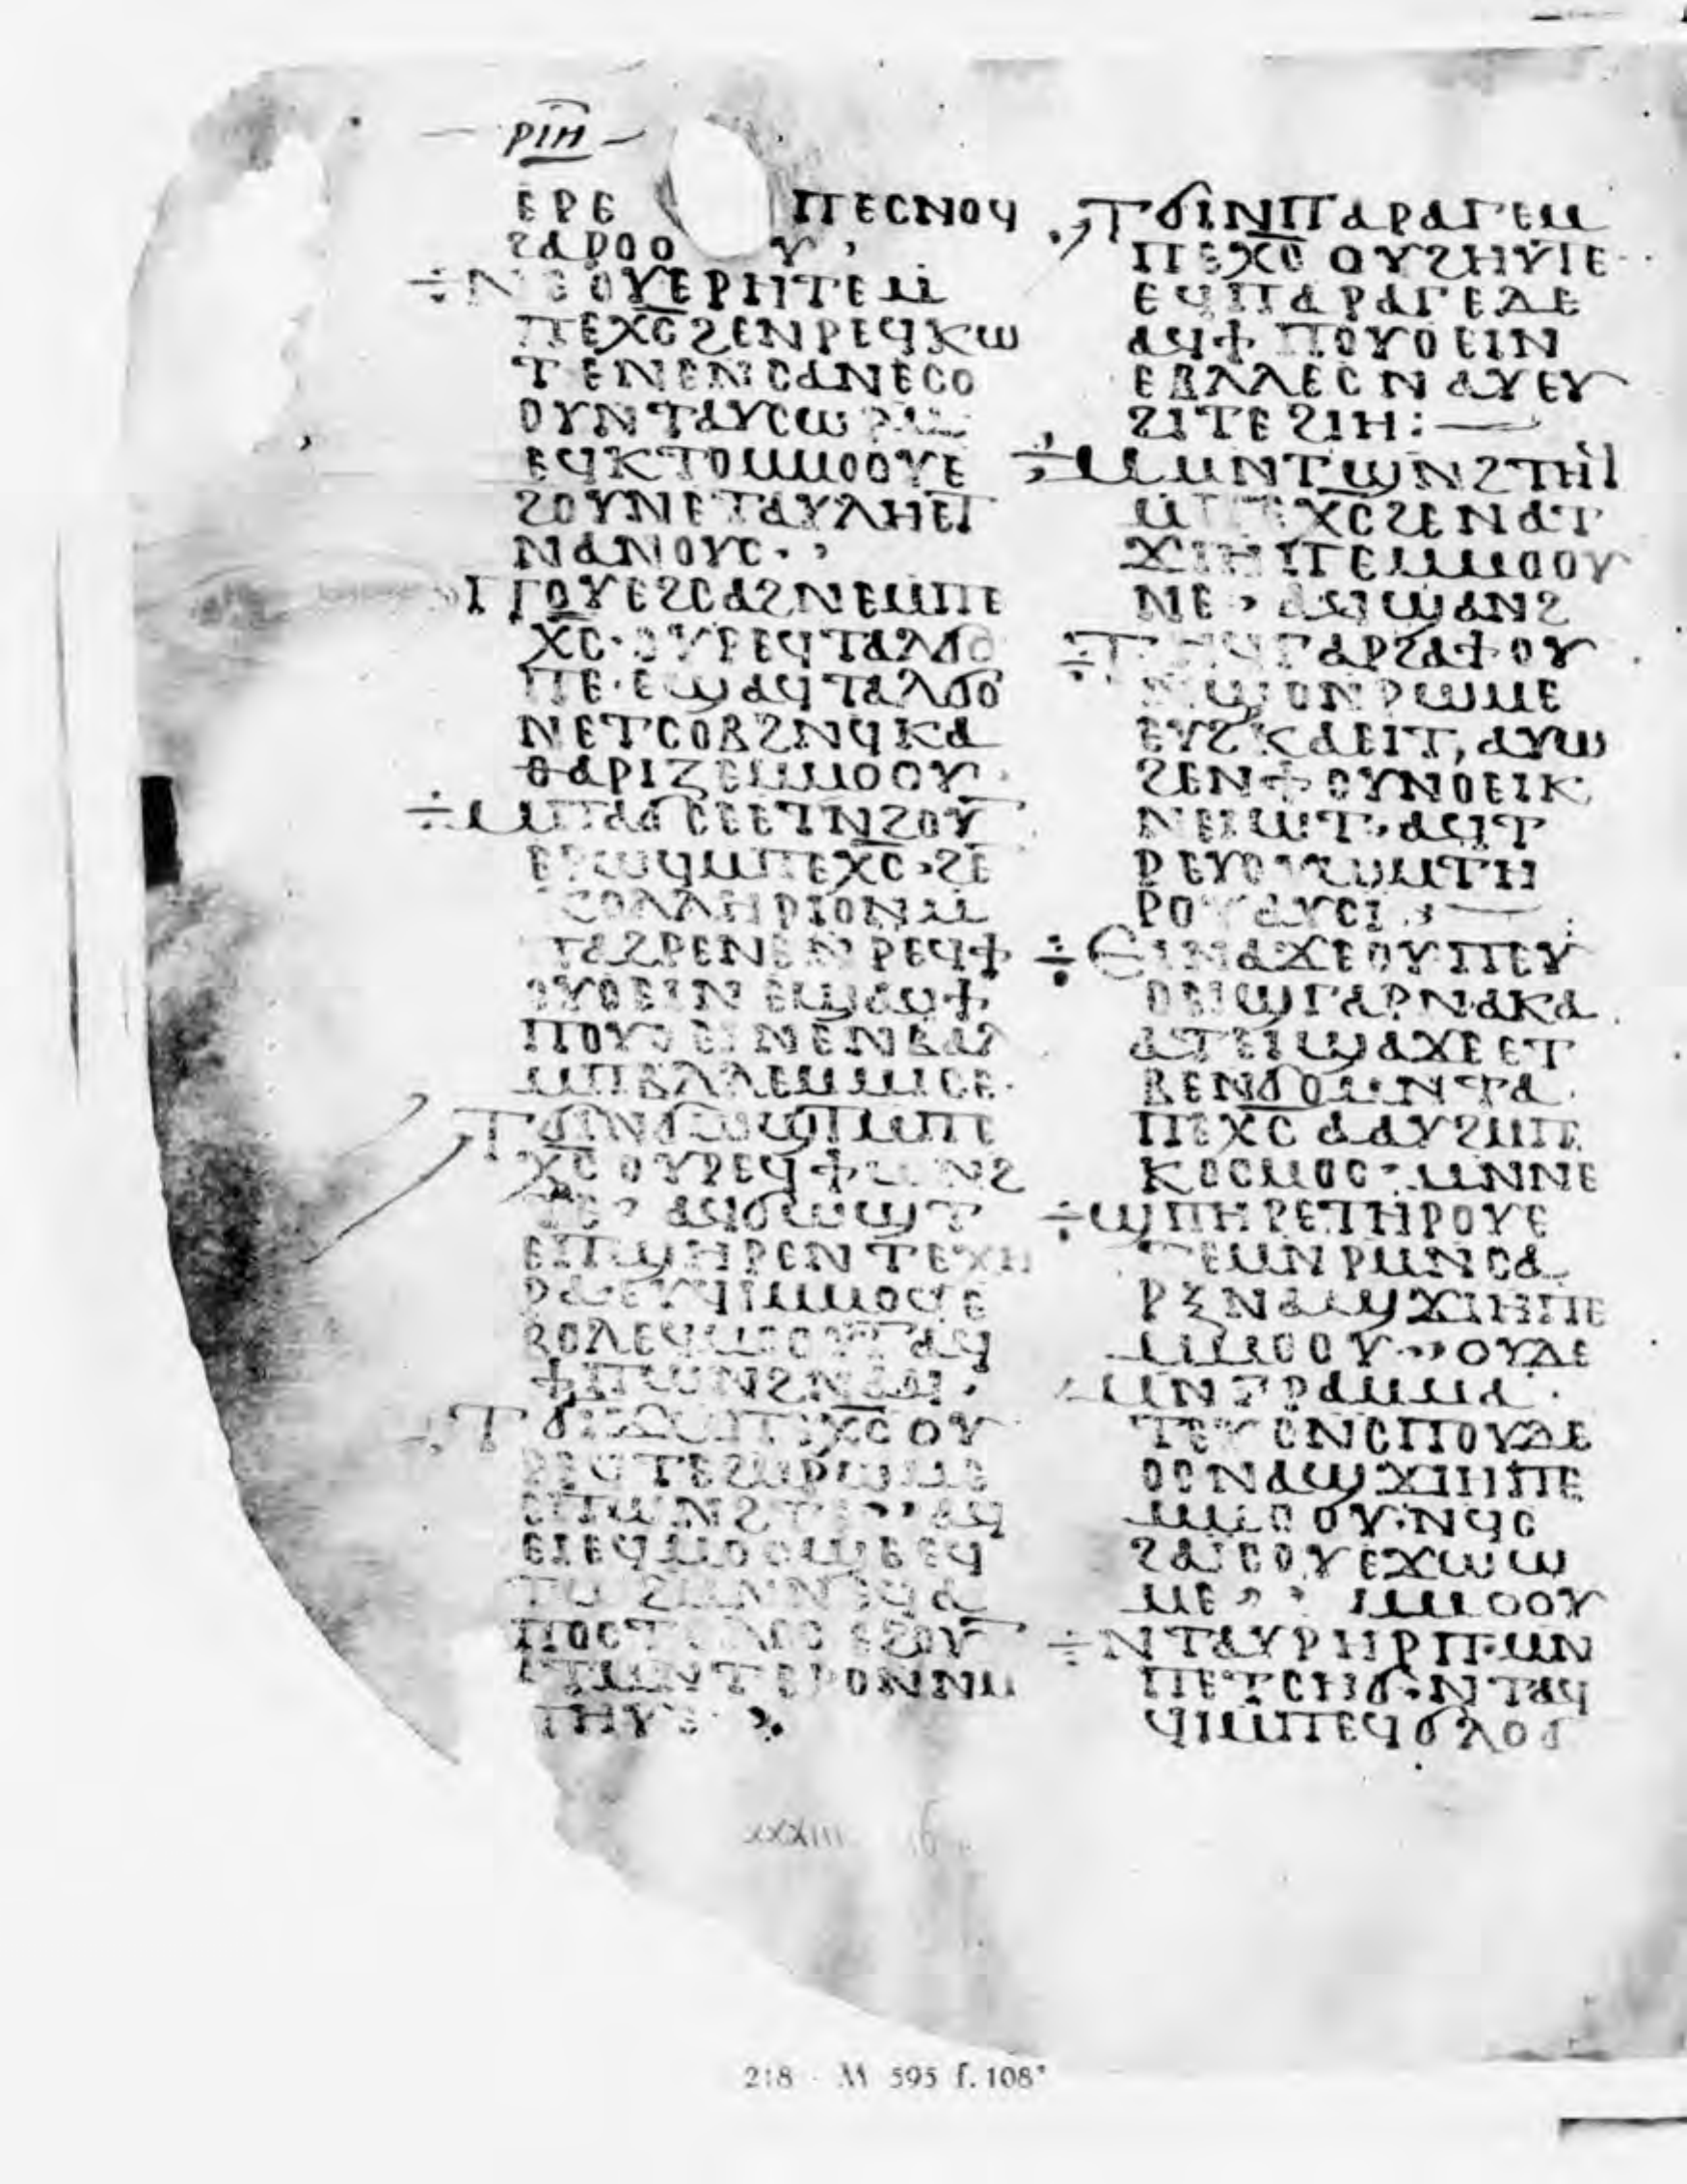 ⲣⲓⲏ
ⲉⲣⲉ ⲡⲉⲥⲛⲟϥ
ϩⲁⲣⲟⲟⲩ ,
ⲛⲉⲟⲩⲉⲣⲏⲧⲉⲙ
ⲡⲉⲭ̅ⲥ̅ϩⲉⲛⲣⲉϥⲕⲱ
ⲧⲉⲛⲉⲛⲥⲁⲛⲉⲥⲟ
ⲟⲩⲛⲧⲁⲩⲥⲱⲣⲙ
ⲉϥⲕⲧⲟⲙⲙⲟⲟⲩⲉ
ϩⲟⲩⲛⲉⲧⲁⲩⲗⲏⲉⲧ
ⲛⲁⲛⲟⲩⲥ· ,
ⲡⲟⲩⲉϩⲥⲁϩⲛⲉⲙⲡⲉ
ⲭ̅ⲥ̅·ⲟⲩⲣⲉϥⲧⲁⲗϭⲟ
ⲡⲉ·ⲉϣⲁϥⲧⲁⲗϭⲟ
ⲛⲉⲧⲥⲟⲃϩⲛϥⲕⲁ
ⲑⲁⲣⲓⲍⲉⲙⲙⲟⲟⲩ·
ⲙⲡⲁϭⲥⲉⲉⲧⲛϩⲟⲩ
ⲉⲣⲱϥⲙⲡⲉⲭ̅ⲥ̅·ϩⲉ
ⲕⲟⲗⲗⲏⲣⲓⲟⲛⲙ
ⲡⲁϩⲣⲉⲛⲉⲛⲣⲉϥϯ
ⲟⲩⲟⲉⲓⲛⲉϣⲁⲩϯ
ⲡⲟⲩⲟⲉⲓⲛⲉⲛⲉⲛⲃⲁⲗ
ⲙⲡⲃⲗⲗⲉⲙⲙⲓⲥⲉ·
ⲧϭⲓⲛϭⲱϣⲧⲙⲡⲉ
ⲭ̅ⲥ̅ⲟⲩⲣⲉϥϯⲱⲛϩ
ⲧⲉ, ⲁϥϭⲱϣⲧ
ⲉⲡϣⲏⲣⲉⲛⲧⲉⲭⲏ
ⲣⲁⲉⲩϥⲓⲙⲙⲟϥⲉ
ⲃⲟⲗⲉϥⲙⲟⲟⲩⲧⲁϥ
ϯⲡⲱⲛϩⲛⲁϥ·
ⲧϭⲓϫⲙⲡⲉⲭ̅ⲥ̅ⲟⲩ
ⲣⲉϥⲧⲉϩⲙⲣⲱⲙⲉ
ⲉⲡⲱⲛϩⲧⲉ·,ⲁϥ
ⲉⲓⲉϥⲙⲟⲟϣⲉⲉϥ
ⲧⲱϩⲙⲛⲛⲉϥⲁ
ⲡⲟⲥⲧⲟⲗⲟⲥⲉϩⲟⲩ
ⲉⲧⲙⲛⲧⲉⲣⲟⲛⲙⲡ
ⲡⲏⲩⲉ·
ⲧϭⲓⲛⲡⲁⲣⲁⲅⲉⲙ
ⲡⲉⲭ̅ⲥ̅ⲟⲩϩⲏⲩⲡⲉ·
ⲉϥⲡⲁⲣⲁⲅⲉⲇⲉ
ⲁϥϯⲡⲟⲩⲟⲉⲓⲛ
ⲉⲃⲗⲗⲉⲥⲛⲁⲩⲉⲩ
ϩⲓⲧⲉϩⲓⲏ:—
ⲙⲙⲛⲧϣⲛϩⲧⲏⲓ
ⲙⲡⲉⲭⲥϩⲉⲛⲁⲧ
ϫⲓⲏⲡⲉⲙⲙⲟⲟⲩ
ⲛⲉ,ⲁϥϣⲁⲛϩ
ⲧⲏϥⲅⲁⲣϩⲁϯⲟⲩ
ⲛϣⲟⲛⲣⲱⲙⲉ
ⲉⲩϩⲕⲁⲉⲓⲧ,ⲁⲩⲱ
ϩⲉⲛϯⲟⲩⲛⲟⲉⲓⲕ
ⲛⲉⲓⲱⲧ·ⲁϥⲧ
ⲣⲉⲩⲟⲩⲱⲙⲧⲏ
ⲣⲟⲩⲁⲩⲥⲓ·—
ⲉⲓⲛⲁϫⲉⲟⲩⲡⲉⲩ
ⲟⲉⲓϣⲅⲁⲣⲛⲁⲕⲁ
ⲁⲧⲉⲓϣⲁϫⲉⲉⲧ
ⲃⲉⲛϭⲟⲙⲛⲧⲁ·
ⲡⲉⲭⲥⲁⲁⲩϩⲙⲡ
ⲕⲟⲥⲙⲟⲥ·ⲙⲛⲛⲉ
ϣⲡⲏⲣⲉⲧⲏⲣⲟⲩⲉ
ⲧⲉⲙⲛⲣⲙⲛⲥⲁ
ⲣⲝⲛⲁϣϫⲓⲏⲡⲉ
ⲙⲙⲟⲟⲩ·,,ⲟⲩⲇⲉ
ⲙⲛⲅⲣⲁⲙⲙⲁ·
ⲧⲉⲩⲥⲛⲥⲡⲟⲩⲇⲉ
ⲟⲥⲛⲁϣϫⲓⲏⲡⲉ
ⲙⲙⲟⲟⲩ·ⲛϥⲥ
ϩⲁⲓⲥⲟⲩⲉϫⲱⲱ
ⲙⲉ,, ⲙⲙⲟⲟⲩ
ⲛⲧⲁⲩⲣⲏⲣⲡ·ⲙⲛ
ⲡⲉⲧⲥⲏϭ·ⲛⲧⲁϥ
ϥⲓⲙⲡⲉϥϭⲗⲟϭ
xxxiii
218 - M 595 f. 108ᵛ